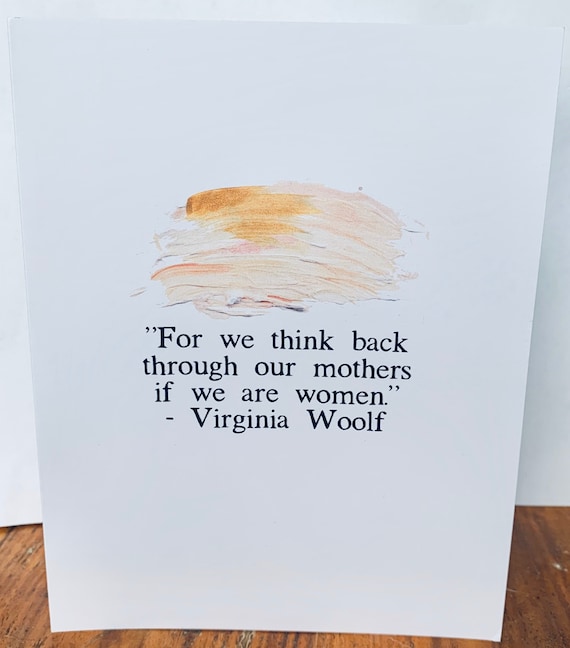 ”For we think back
through our mothers
if we are women.”
- Virginia Woolf